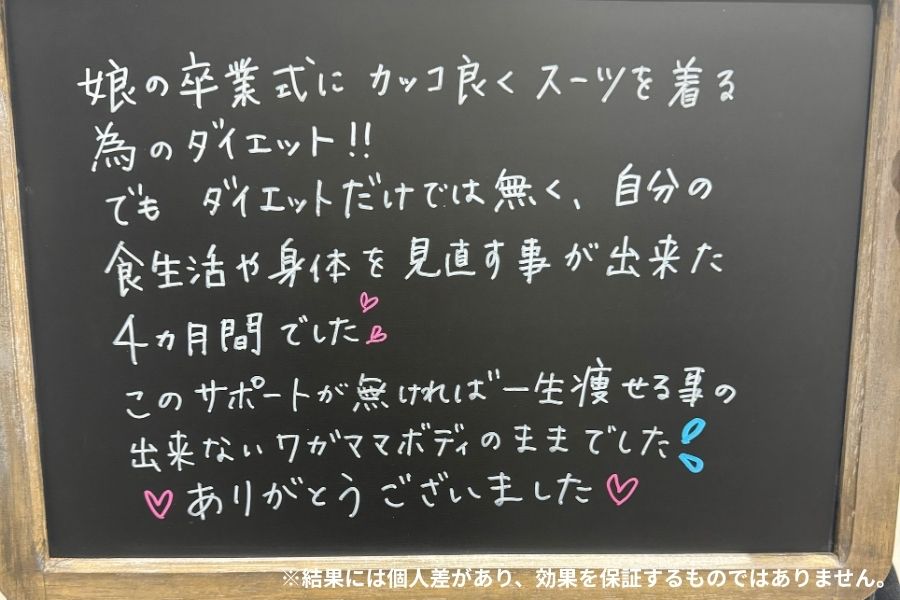 娘の卒業式に カッコ良く スーツを着る
為のダイエット!!
でも ダイエットだけでは無く、自分の
食生活や身体を見直す事が出来た
4ヵ月間でした
このサポートが無ければ一生痩せる事の
出来ないワガママボディのままでした
ありがとうございました
※結果には個人差があり、効果を保証するものではありません。